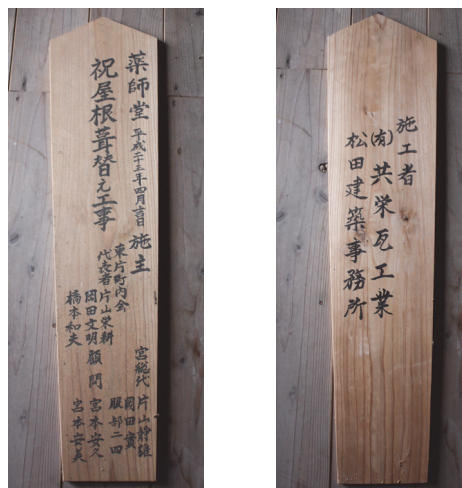 薬師堂 平成二十三年四月吉日 施主
祝屋根葺替え工事
東片町内会
代表者 片山栄耕
岡田文明
橋本和夫
宮総代 片山静雄
岡田實
服部二四
顧問 宮本安久
宮本安美
施工者
(有)共栄瓦工業
松田建築事務所